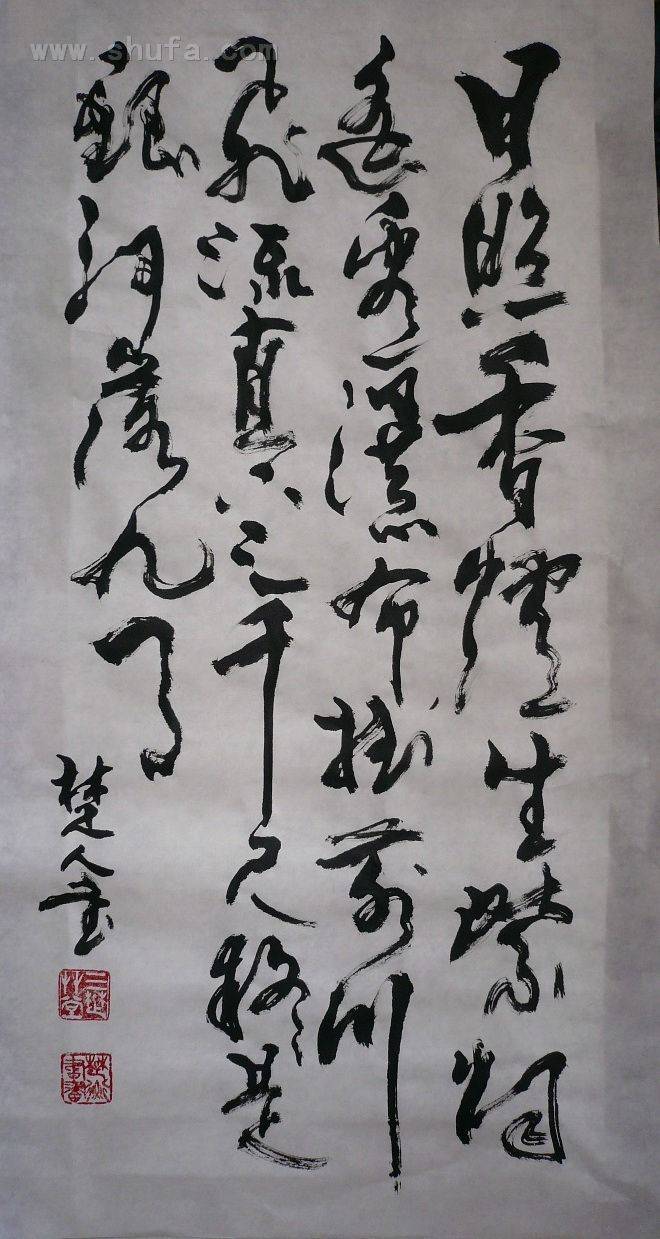 www.shufa.com
日照香爐生紫烟
遥看瀑布掛前川
飛流直下三千尺疑是
銀河落九天
楚人书